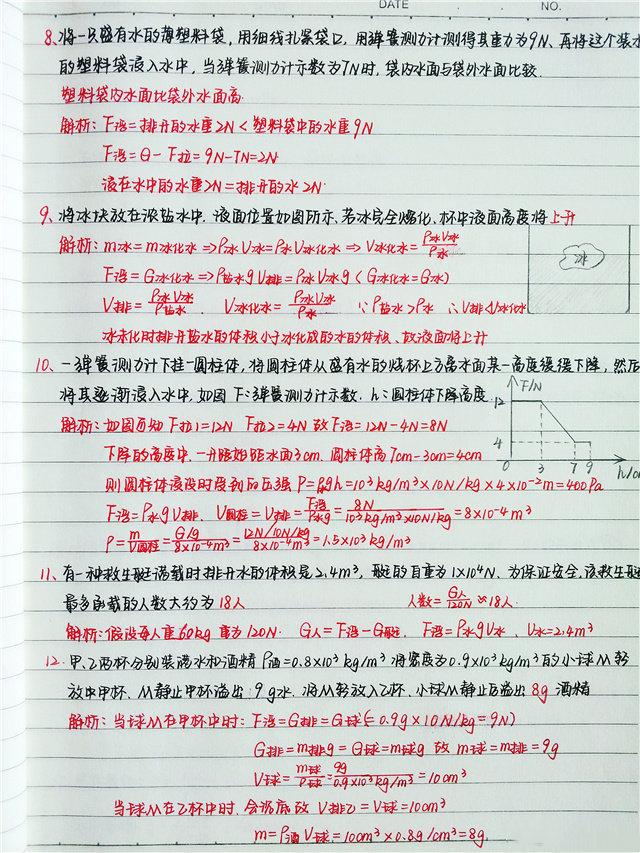 DATE NO.
8、将一只盛有水的薄塑料袋，用细线扎紧袋口，用弹簧测力计测得其重力为9N、再将这个装水
的塑料袋浸入水中，当弹簧测力计示数为7N时，袋内水面与袋外水面比较.
塑料袋内水面比袋外水面高.
解析：F浮=排开的水重2N<塑料袋中的水重9N
F浮=G-F拉=9N-7N=2N
浸在水中的水重2N=排开的水2N.
9、将冰块放在浓盐水中. 液面位置如图所示、若冰完全熔化、杯中液面高度将上升
解析：m冰=m冰化水 ⇒ρ冰V冰=ρ水V冰化水 ⇒ V冰化水=ρ冰V冰/ρ水
冰
F浮=G冰化水 ⇒ρ盐水gV排=ρ冰V冰g (G冰化水=G冰)
V排=ρ冰V冰/ρ盐水. V冰化水=ρ冰V冰/ρ水 ∵ρ盐水>ρ水 ∴V排<V冰化水
冰未化时排开盐水的体积小于冰化成的水的体积、故液面将上升
10、一弹簧测力计下挂一圆柱体，将圆柱体从盛有水的烧杯上方离水面某一高度缓缓下降，然后
将其逐渐浸入水中，如图 F：弹簧测力计示数. h：圆柱体下降高度.
F/N
12
4
0 3 7 9
解析：如图可知 F拉1=12N F拉2=4N 故F浮=12N-4N=8N
下降的高度中. 一开始距水面3cm. 圆柱体高7cm-3cm=4cm
则圆柱体浸没时受到的压强 P=ρgh=10³kg/m³×10N/kg×4×10⁻²m=400Pa
F浮=ρ水gV排、V圆柱=V排=F浮/ρ水g=8N/10³kg/m³×10N/kg=8×10⁻⁴m³
ρ=m/V圆柱=G/g/8×10⁻⁴m³=12N/10N/kg/8×10⁻⁴m³=1.5×10³kg/m³
11、有一种救生艇满载时排开水的体积是2.4m³，艇的自重为1×10⁴N、为保证安全，该救生艇
最多承载的人数大约为18人 人数=G人/120N≈18人.
解析：假设每人重60kg 重为120N. G人=F浮-G艇、F浮=ρ水gV水、V水=2.4m³
12、甲、乙两杯分别装满水和酒精 ρ酒=0.8×10³kg/m³ 将密度为0.9×10³kg/m³的小球M轻
放中甲杯、M静止甲杯溢出：9g水. 将M轻放入乙杯、小球M静止后溢出8g 酒精
解析：当球M在甲杯中时：F浮=G排=G球(=0.9g×10N/kg=9N)
G排=m排g=G球=m球g 故 m球=m排=9g
V球=m球/ρ球=9g/0.9×10³kg/m³=10cm³
当球M在乙杯中时. 会沉底 故 V排乙=V球=10cm³
m=ρ酒V球=10cm³×0.8g/cm³=8g.